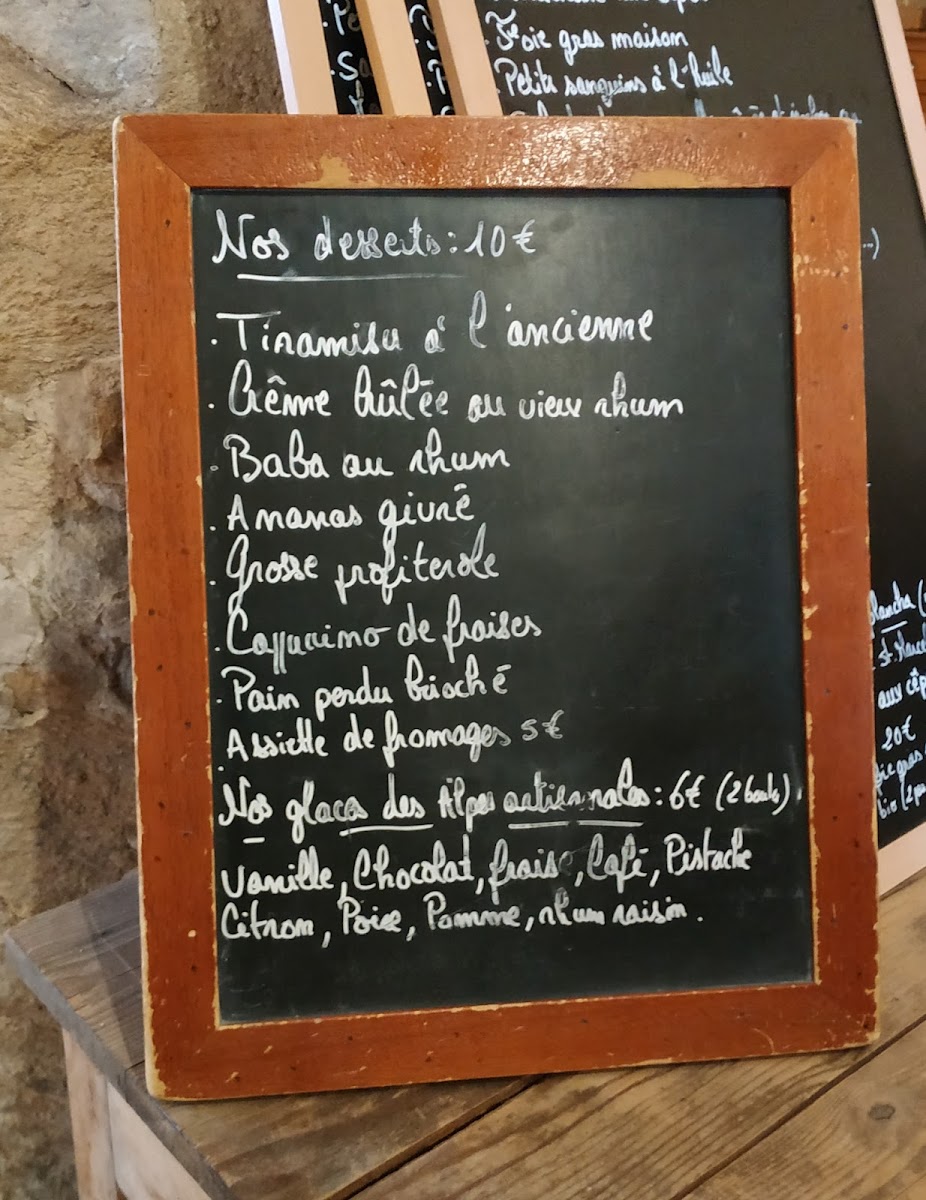 Foie gras maison
Petits sanguins à l'huile
Nos desserts : 10 €
. Tiramisu à l'ancienne
. Crème brûlée au vieux rhum
. Baba au rhum
. Ananas givré
. Grosse profiterole
. Cappucino de fraises
. Pain perdu brioché
. Assiette de fromages 5 €
Nos glaces des Alpes artisanales : 6€ (2 boules)
Vanille, Chocolat, fraise, Café, Pistache
Citron, Poire, Pomme, rhum raisin.
aux
20€